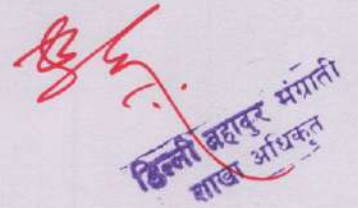 डिल्ली बहादुर मंग्राती
शाखा अधिकृत